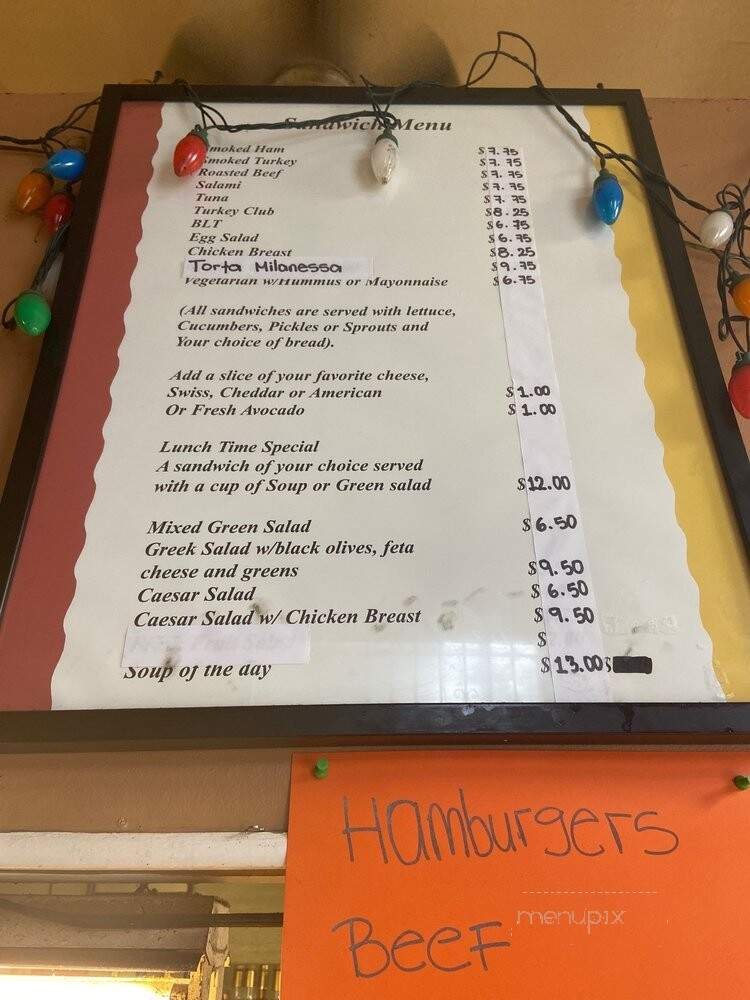 Sandwich Menu
Smoked Ham $7.75
Smoked Turkey $7.75
Roasted Beef $7.75
Salami $7.75
Tuna $7.75
Turkey Club $8.25
BLT $6.75
Egg Salad $6.75
Chicken Breast $8.25
Torta Milanessa $9.75
Vegetarian w/Hummus or Mayonnaise $6.75
(All sandwiches are served with lettuce,
Cucumbers, Pickles or Sprouts and
Your choice of bread).
Add a slice of your favorite cheese,
Swiss, Cheddar or American $1.00
Or Fresh Avocado $1.00
Lunch Time Special
A sandwich of your choice served
with a cup of Soup or Green salad $12.00
Mixed Green Salad $6.50
Greek Salad w/black olives, feta
cheese and greens $9.50
Caesar Salad $6.50
Caesar Salad w/ Chicken Breast $9.50
$
Soup of the day $13.00 $
Hamburgers
Beef
menupix